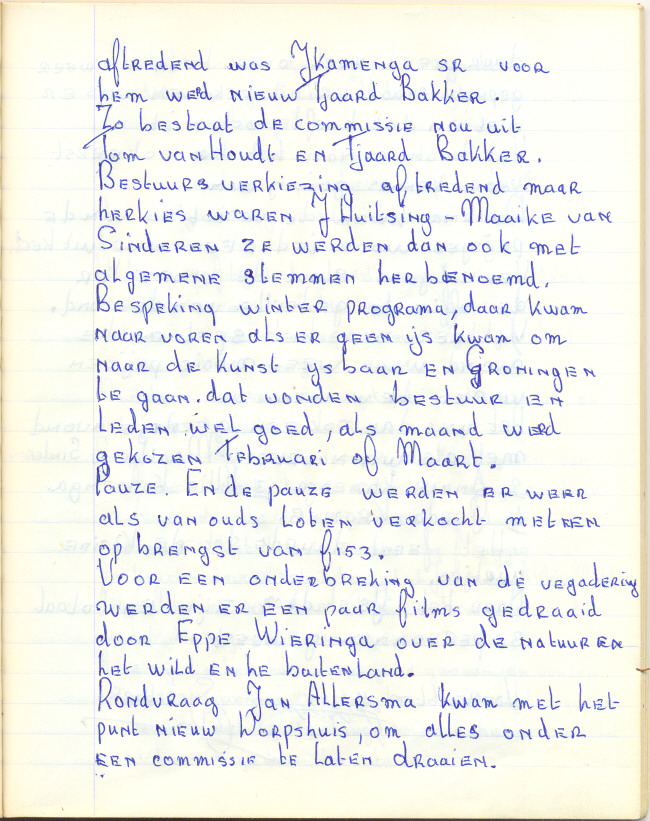 aftredend was J Kamenga sr voor
hem werd nieuw Tjaard Bakker.
Zo bestaat de commissie nou uit
Tom van Houdt en Tjaard Bakker.
Bestuurs verkiezing aftredend maar
herkies waren J Huitsing - Maaike van
Sinderen ze werden dan ook met
algemene stemmen her benoemd.
Bespeking winter programa, daar kwam
naar voren als er geen ijs kwam om
naar de Kunst ys baar en Groningen
te gaan. dat vonden bestuur en
leden wel goed, als maand werd
gekozen Februari of Maart.
Pauze. En de pauze werden er weer
als van ouds loten verkocht met een
op brengst van f153.
Voor een onderbreking van de vegadering
werden er een paar films gedraaid
door Eppe Wieringa over de natuur en
het wild en he buitenland.
Rondvraag Jan Allersma kwam met het
punt nieuw Dorpshuis, om alles onder
een commissie te laten draaien.